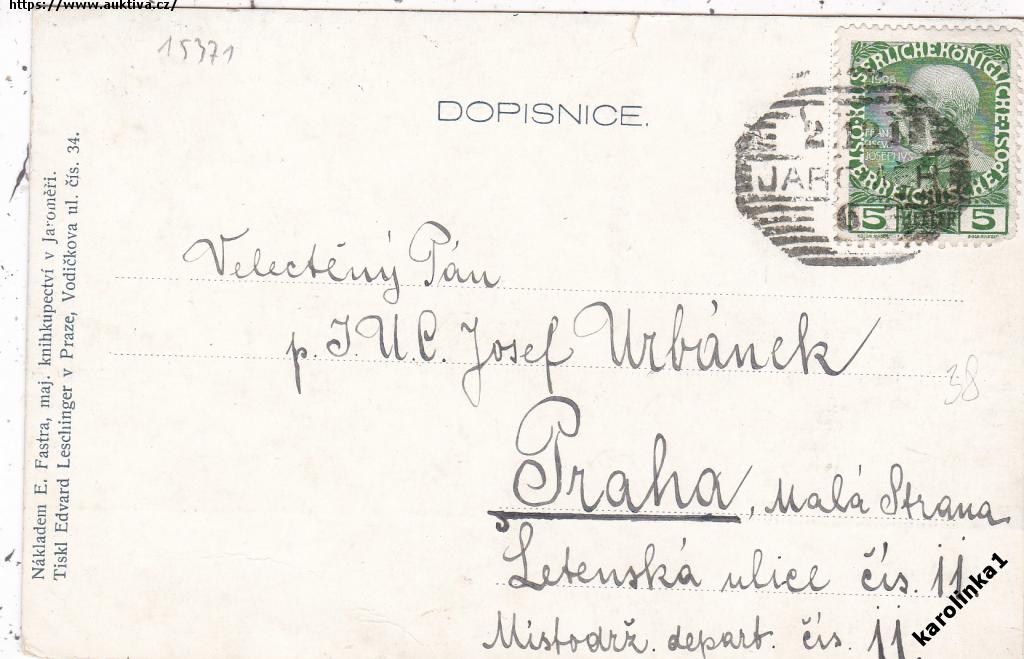 https://www.auktiva.cz/
15371
DOPISNICE.
SERLICHEKÖNIGLICHE
1908
JOSEPHVS
5 HELLER 5
Velectěný Pán
p. J.U.C. Josef Urbánek
38
Praha, Malá Strana
Letenská ulice čís. 11
Místodrž. depart. čís. 11
Nákladem E. Fastra, maj. knihkupectví v Jaroměři.
Tiskl Edvard Leschinger v Praze, Vodičkova ul. čís. 34.
karolinka1